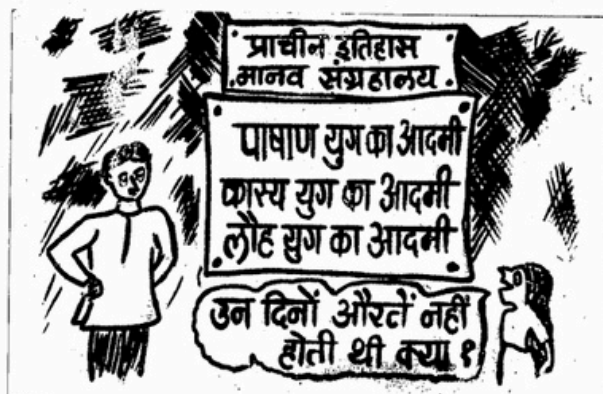 प्राचीन इतिहास
मानव संग्रहालय
पाषाण युग का आदमी
कास्य युग का आदमी
लौह युग का आदमी
उन दिनों औरतें नहीं
होती थी क्या ?